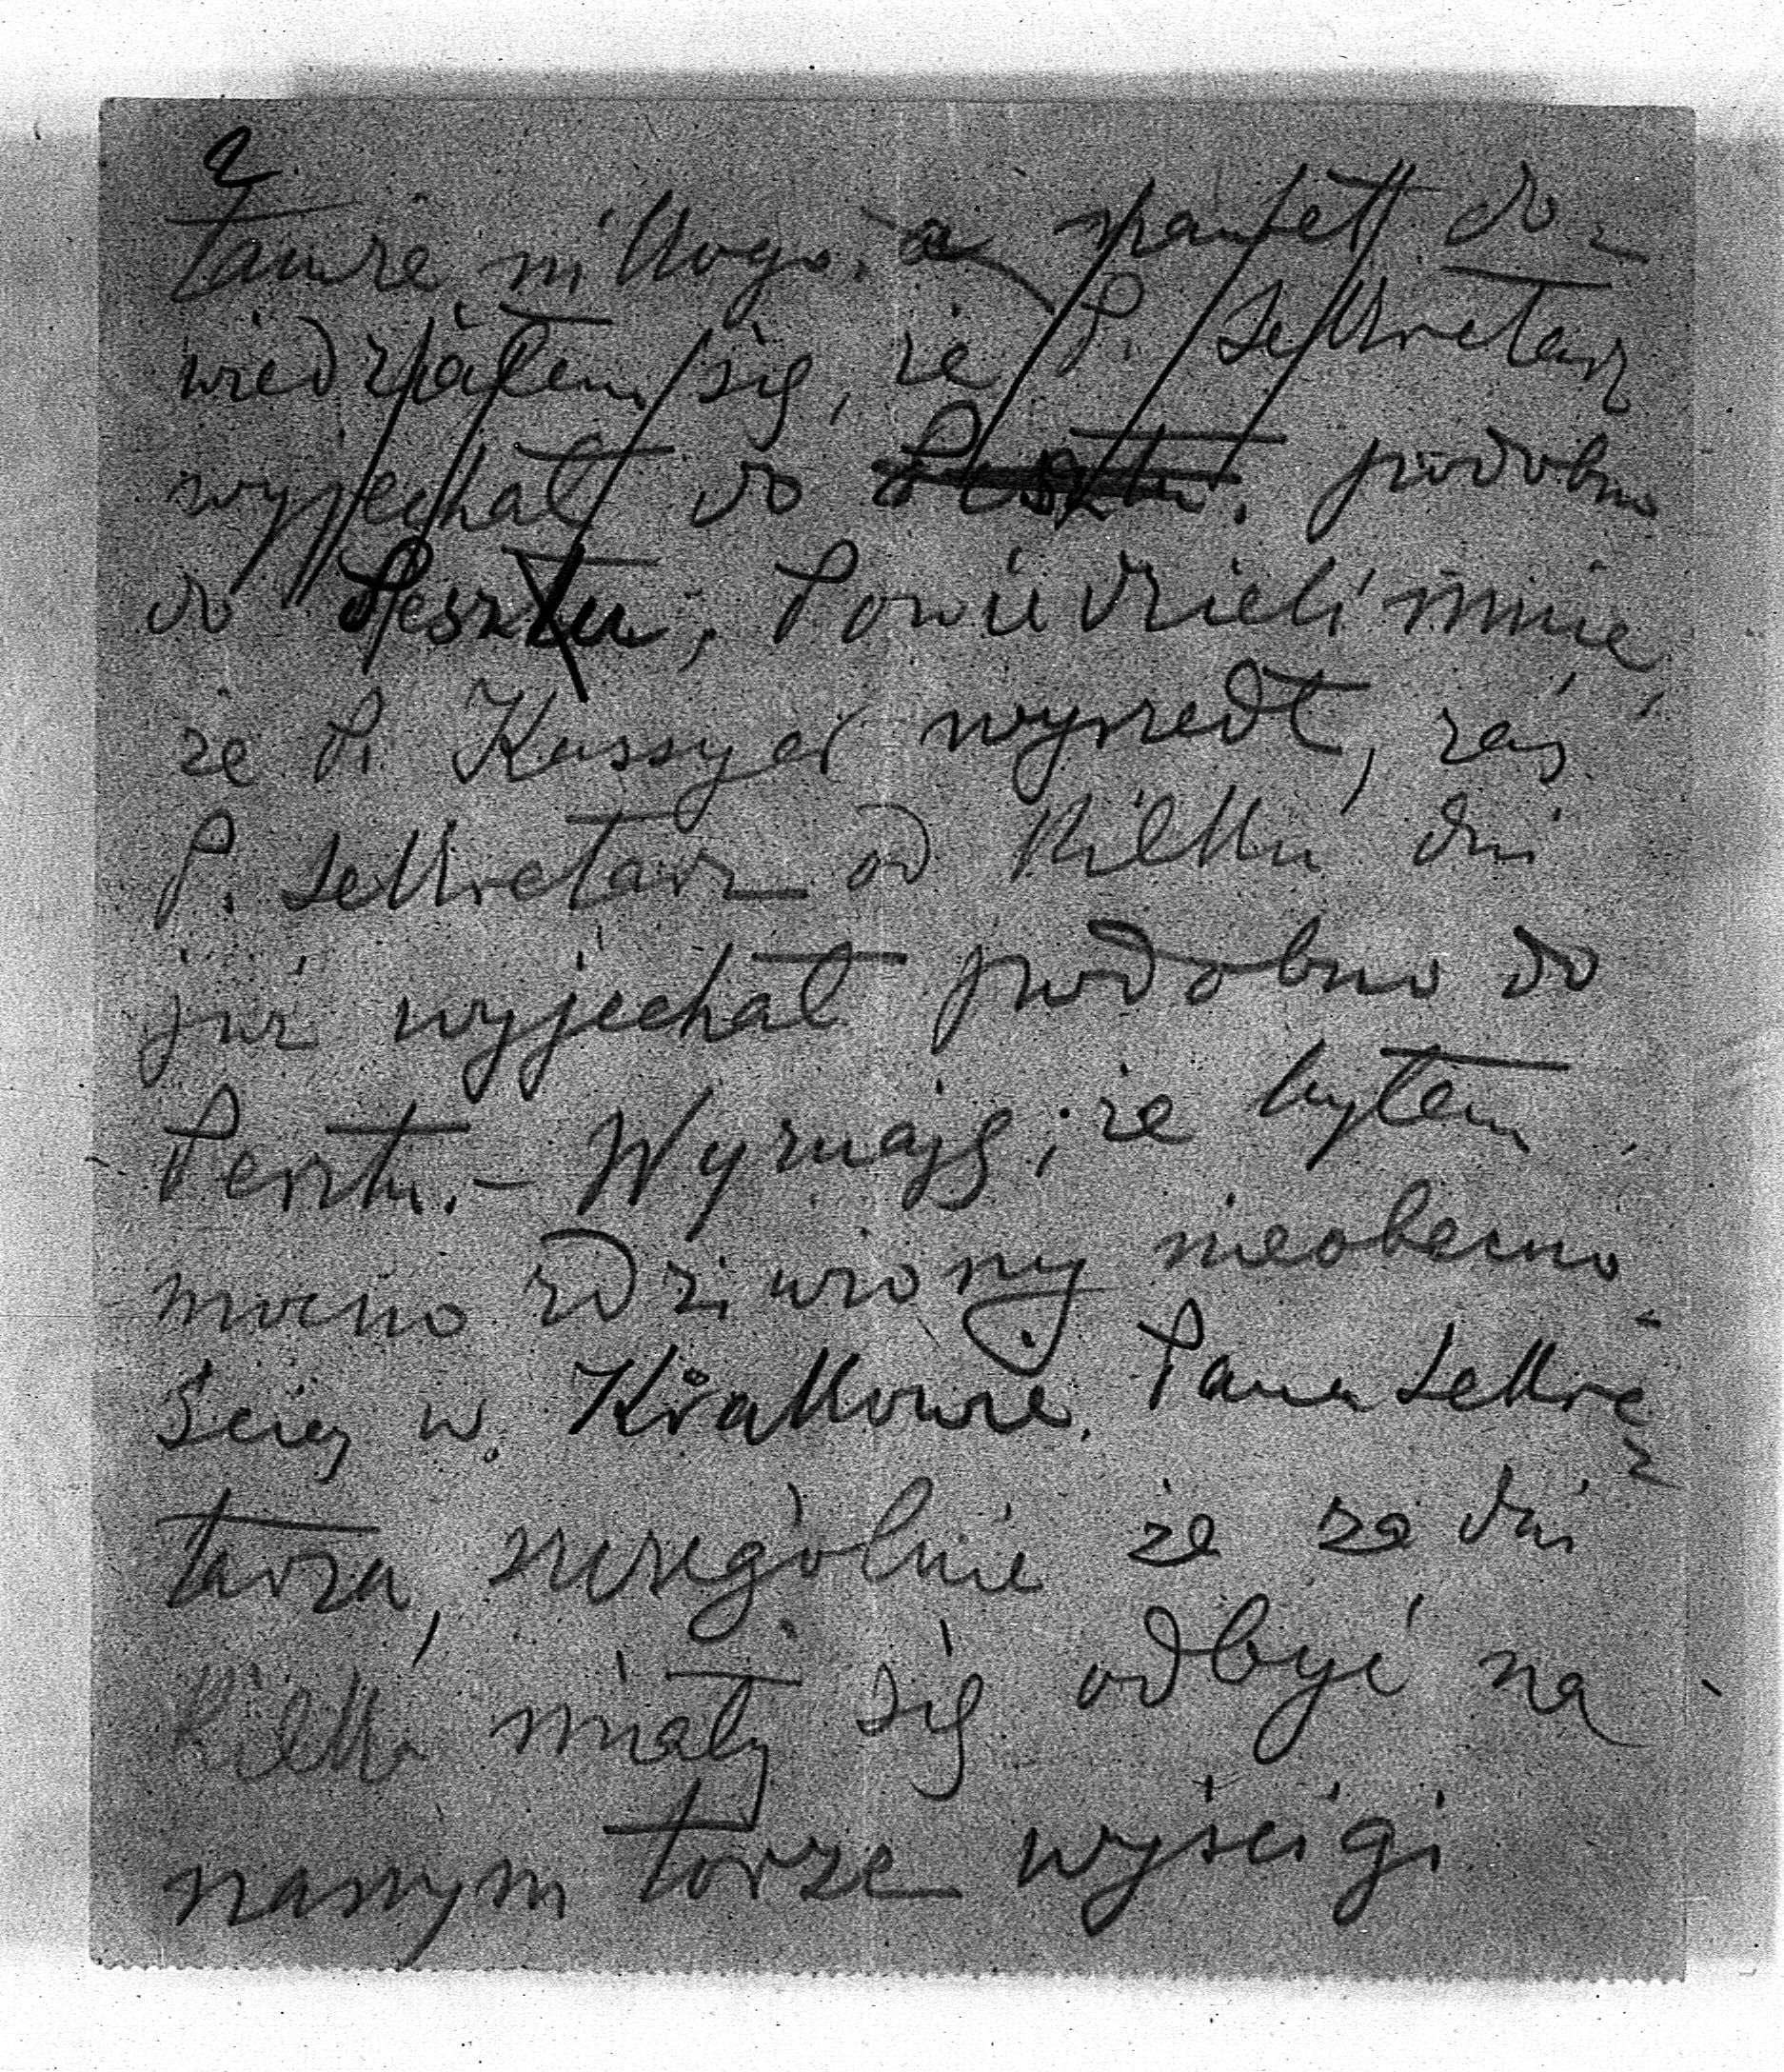 2
tamże nikogo, a
wiedziałem się, że P. Sekretarz
wyjechał do Pesztu. podobno
do Pesztu, Powiedzieli mnie,
że P. Kassyer wyszedł, zaś
P. Sekretarz od kilku dni
już wyjechał podobno do
Pesztu. – Wyznaję, że byłem
mocno zdziwiony nieobecno
ścią w Krakowie. Pana Sekre
tarza, szczególnie że za dni
kilka miały się odbyć na
naszym torze wyścigi